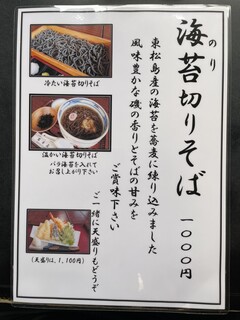 海苔切りそば
のり
一〇〇〇円
東松島産の海苔を蕎麦に練り込みました
風味豊かな磯の香りとそばの甘みを
ご賞味下さい
ご一緒に天盛りもどうぞ
冷たい海苔切りそば
温かい海苔切りそば
バラ海苔を入れて
お召し上がり下さい
(天盛りは、1,100円)